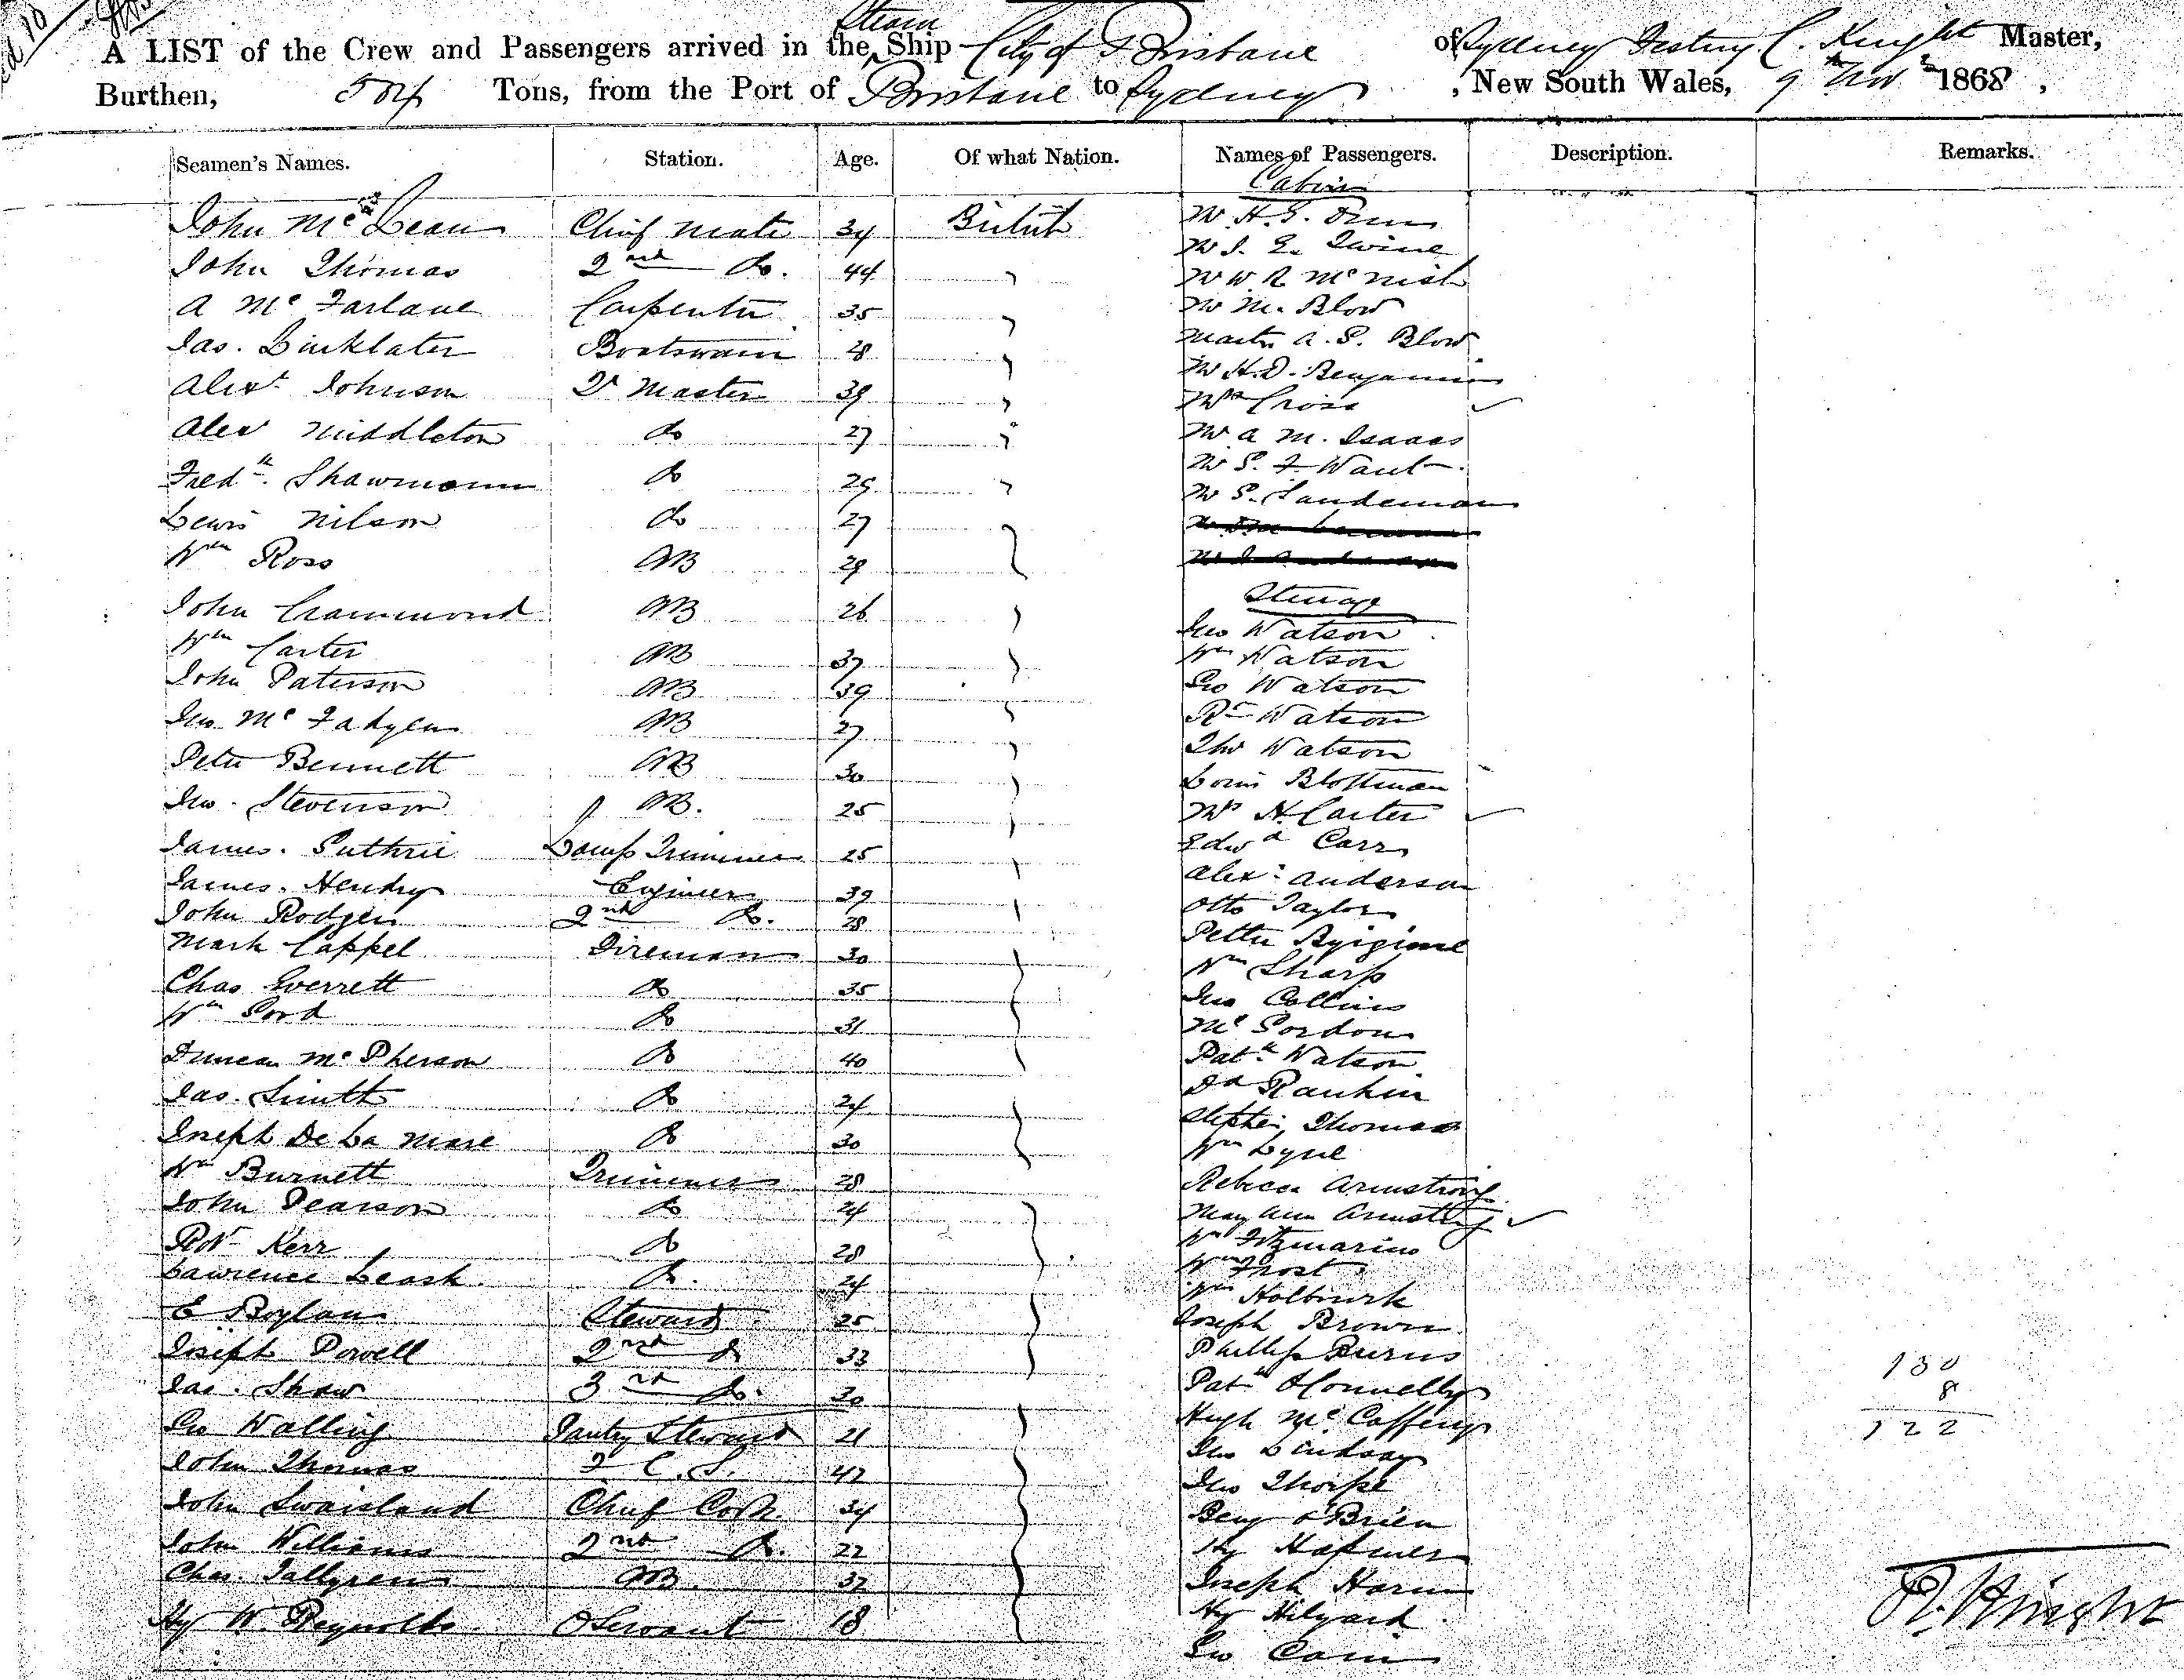 A LIST of the Crew and Passengers arrived in the Steam Ship City of Brisbane of Sydney C. Knight Master,
Burthen, 504 Tons, from the Port of Brisbane to Sydney, New South Wales, 9th Nov 1868,
Seamen's Names. Station. Age. Of what Nation. Names of Passengers. Description. Remarks.
John McLean Chief Mate 34 British
John Thomas 2nd Do. 44
A McFarlane Carpenter 35
Jas. Linklater Boatswain 28
Alexr Johnson Qr Master 39
Alex Middleton do 27
Fredk. Shawmann do 29
Lewis Nilson do 27
Wm Ross AB 29
John Crammond AB 26
Wm Carter AB 37
John Paterson AB 39
Jno McFadyen AB 27
Peter Bennett AB 30
Jno. Stevenson AB. 25
James. Guthrie Lamp Trimmer 25
James. Hendry Engineer 39
John Rodgers 2nd Do. 28
Mark Cappel Fireman 30
Chas Everrett Do 35
Wm Ford Do 31
Duncan McPherson Do 40
Jas. Smith Do 24
Joseph De La Mare Do 30
Wm Burnett Trimmer 28
John Pearson Do 24
Robt Kerr Do 28
Lawrence Leask. Do. 24
E Boylan Steward 25
Joseph Powell 2nd do 33
Jas. Shaw 3rd do. 30
Geo Walling Pantry Steward 21
John Thomas F. C. S. 42
John Swaisland Chief Cook 34
John Williams 2nd Do. 22
Chas. Tallgren AB. 32
Hy W. Reynolds O Servant 18
Cabin
Mr H. G.
Mr J. E. Twine
Mr W R McNish
Mr M. Blow
Master A. S. Blow
Mr H. D. Benjamin
Mrs Cross
Mr A M. Isaacs
Mr S. F Want
Mr G. Sandeman
Steerage
Jno Watson
Wm Watson
Geo Watson
Rd Watson
Thos Watson
Louis Blottman
Mrs H Carter
Edwd Carr
Alexr Anderson
Otto Taylor
Petter
Wm Sharp
Jno Collins
Mc Gordon
Patk Watson
Dd Rankin
Stephen Thomas
Wm Lyne
Rebecca Armstrong
Mary Ann Armstrong
Wm Fitzmarino
Wm Frost
Wm Holbrook
Joseph Brown
Phillip Burns
Patk OConnelly
Hugh McCaffery
Jno Lindsay
Jno Thorpe
Benj OBrien
Hy Hafmer
Joseph Harm
Hy Hilyard
Geo Cain
130
8
122
C. Knight